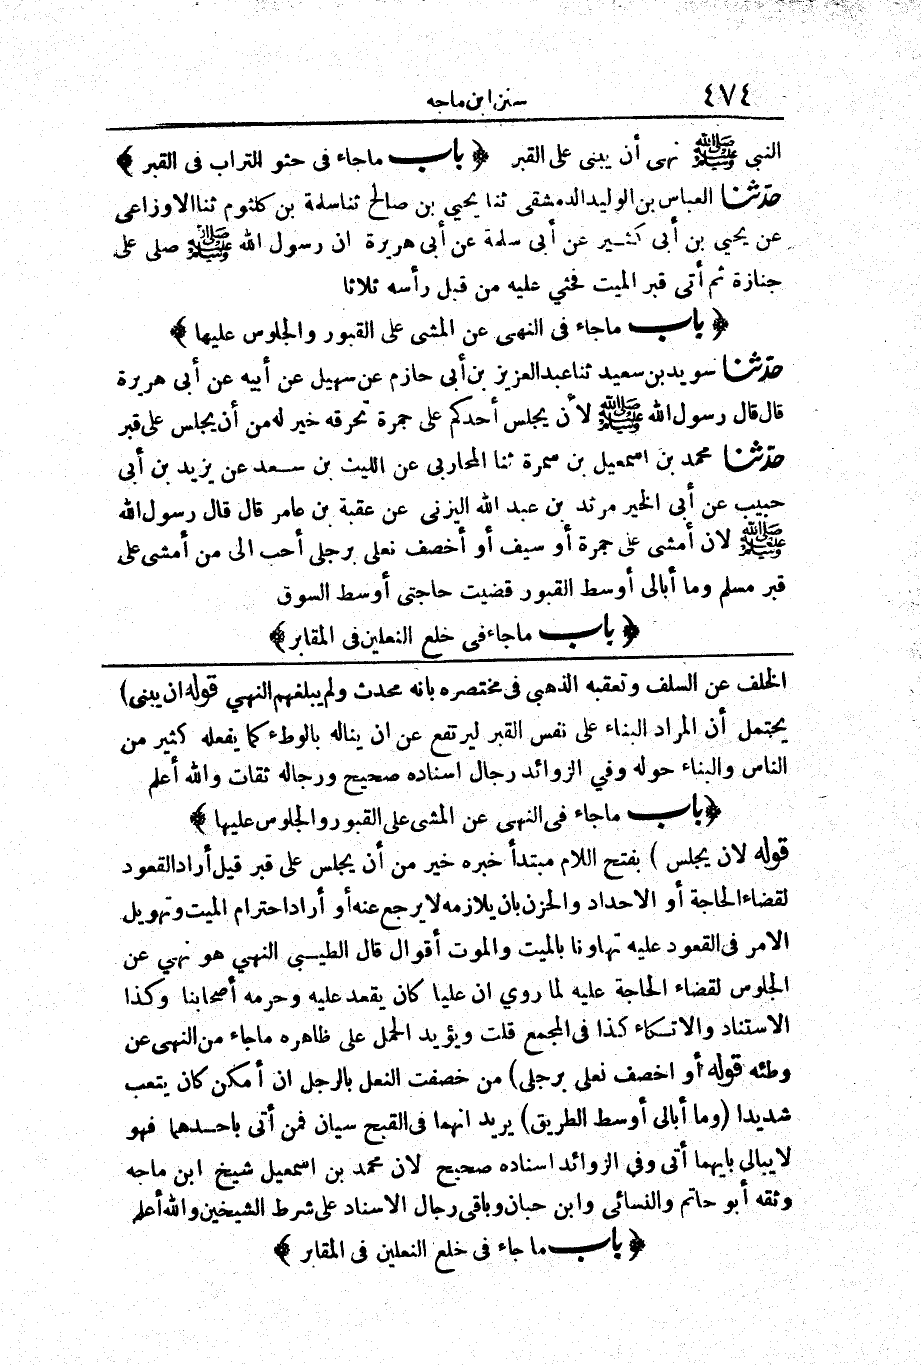 ٤٧٤
سنن ابن ماجه
النبي ﷺ نهى أن يبنى على القبر ﴿ باب ماجاء فى حثو التراب فى القبر ﴾
حدّثنا العباس بن الوليد الدمشقى ثنا يحيي بن صالح ثنا سلمة بن كلثوم ثنا الاوزاعى
عن يحيي بن أبى كثير عن أبى سلمة عن أبى هريرة ان رسول الله ﷺ صلى على
جنازة ثم أتى قبر الميت فحثي عليه من قبل رأسه ثلاثا
﴿ باب ماجاء فى النهى عن المشى على القبور والجلوس عليها ﴾
حدّثنا سويد بن سعيد ثنا عبد العزيز بن أبى حازم عن سهيل عن أبيه عن أبى هريرة
قال قال رسول الله ﷺ لأن يجلس أحدكم على جمرة تحرقه خير له من أن يجلس على قبر
حدّثنا محمد بن اسمعيل بن سمرة ثنا المحاربى عن الليث بن سعد عن يزيد بن أبى
حبيب عن أبى الخير مرثد بن عبد الله اليزنى عن عقبة بن عامر قال قال رسول الله
ﷺ لان أمشى على جمرة أو سيف أو أخصف نعلى برجلى أحب الى من أمشى على
قبر مسلم وما أبالى أوسط القبور قضيت حاجتى أوسط السوق
﴿ باب ماجاء فى خلع النعلين فى المقابر ﴾
الخلف عن السلف وتعقبه الذهبى فى مختصره بانه محدث ولم يبلغهم النهي قوله ان يبنى)
يحتمل أن المراد البناء على نفس القبر ليرتفع عن ان يناله بالوطء كما يفعله كثير من
الناس والبناء حوله وفي الزوائد رجال اسناده صحيح ورجاله ثقات والله أعلم
﴿ باب ماجاء فى النهى عن المشى على القبور والجلوس عليها ﴾
قوله لان يجلس ) بفتح اللام مبتدأ خبره خير من أن يجلس على قبر قيل أراد القعود
لقضاء الحاجة أو الاحداد والحزن بان يلازمه لا يرجع عنه أو أراد احترام الميت وتهويل
الامر فى القعود عليه تهاونا بالميت والموت أقوال قال الطيبى النهي هو نهي عن
الجلوس لقضاء الحاجة عليه لما روي ان عليا كان يقعد عليه وحرمه أصحابنا وكذا
الاستناد والاتكاء كذا فى المجمع قلت ويؤيد الحمل على ظاهره ماجاء من النهى عن
وطئه قوله أو اخصف نعلى برجلى) من خصفت النعل بالرجل ان أمكن كان يتعب
شديدا (وما أبالى أوسط الطريق) يريد انهما فى القبح سيان فمن أتى باحدهما فهو
لا يبالى بايهما أتى وفي الزوائد اسناده صحيح لان محمد بن اسمعيل شيخ ابن ماجه
وثقه أبو حاتم والنسائى وابن حبان وباقى رجال الاسناد على شرط الشيخين والله أعلم
﴿ باب ماجاء فى خلع النعلين فى المقابر ﴾